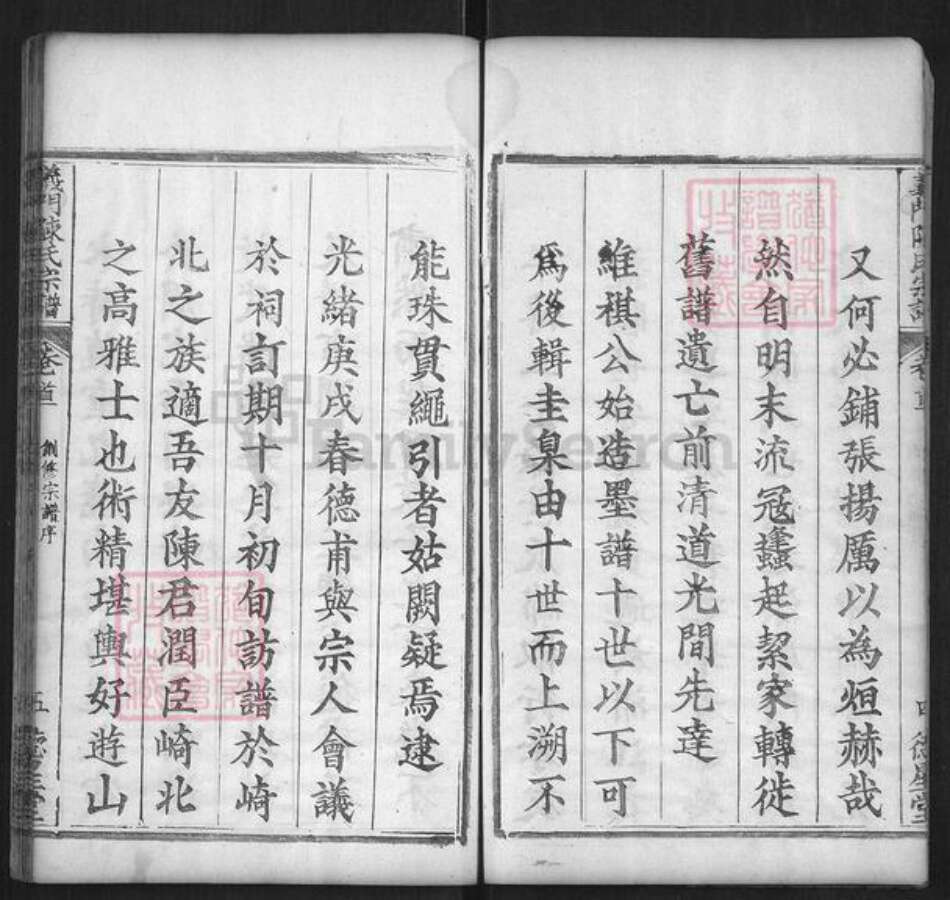 又何必鋪張揚厲以為烜赫哉
然自明末流冠蠭起挈家轉徙
舊譜遺亡前清道光間先達
維棋公始造墨譜十世以下可
為後輯圭臬由十世而上溯不
能珠貫繩引者姑闕疑焉逮
光緒庚戌春德甫與宗人會議
於祠訂期十月初旬訪譜於崎
北之族適吾友陳君潤臣崎北
之高雅士也術精堪輿好遊山
義門陳氏宗譜
卷首
創修宗譜序
五
FamilySearch